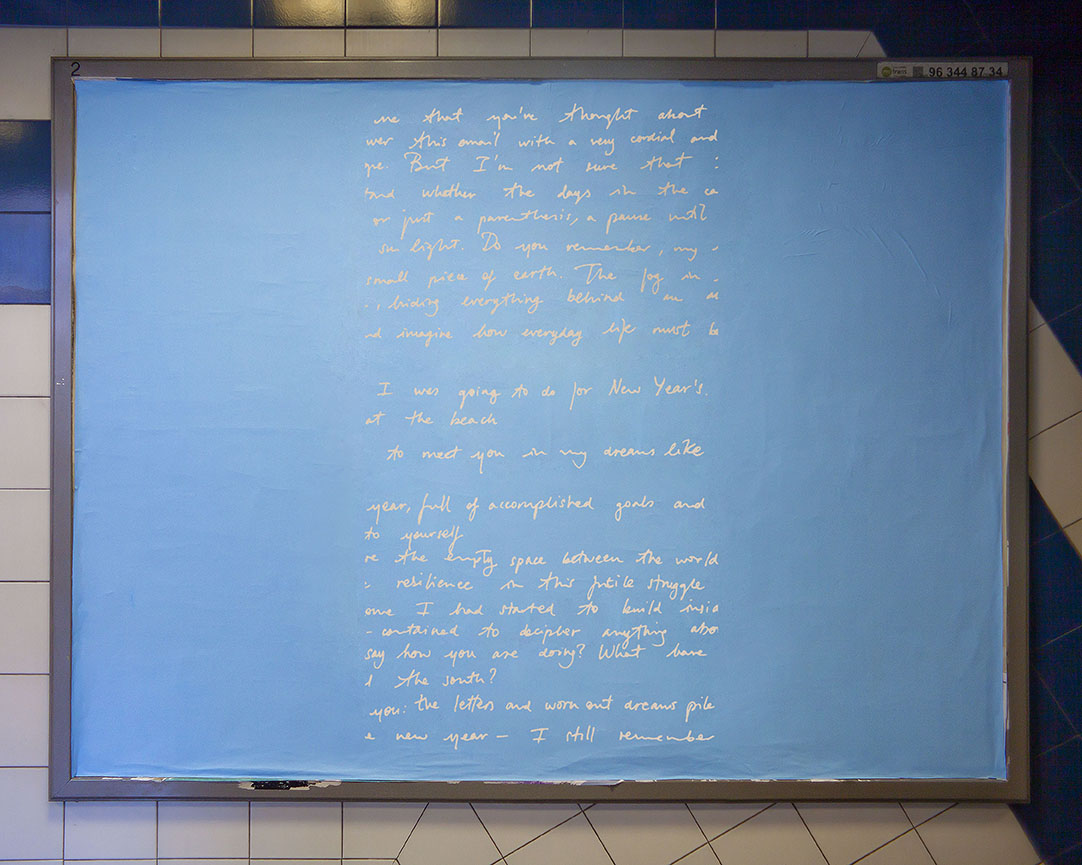 2
96 344 87 34
me that you've thought about
wer this email with a very cordial and
ge. But I'm not sure that
tand whether the days in the ca
or just a parenthesis, a pause until
sun light. Do you remember, my
small piece of earth. The fog in
, hiding everything behind an as
nd imagine how everyday life must be
I was going to do for New Year's.
at the beach
to meet you in my dreams like
year, full of accomplished goals and
to yourself
re the empty space between the world
resilience in this futile struggle
one I had started to build insid
-contained to decipher anything abo
say how you are doing? What have
d the south?
you: the letters and worn out dreams pile
e new year – I still remember